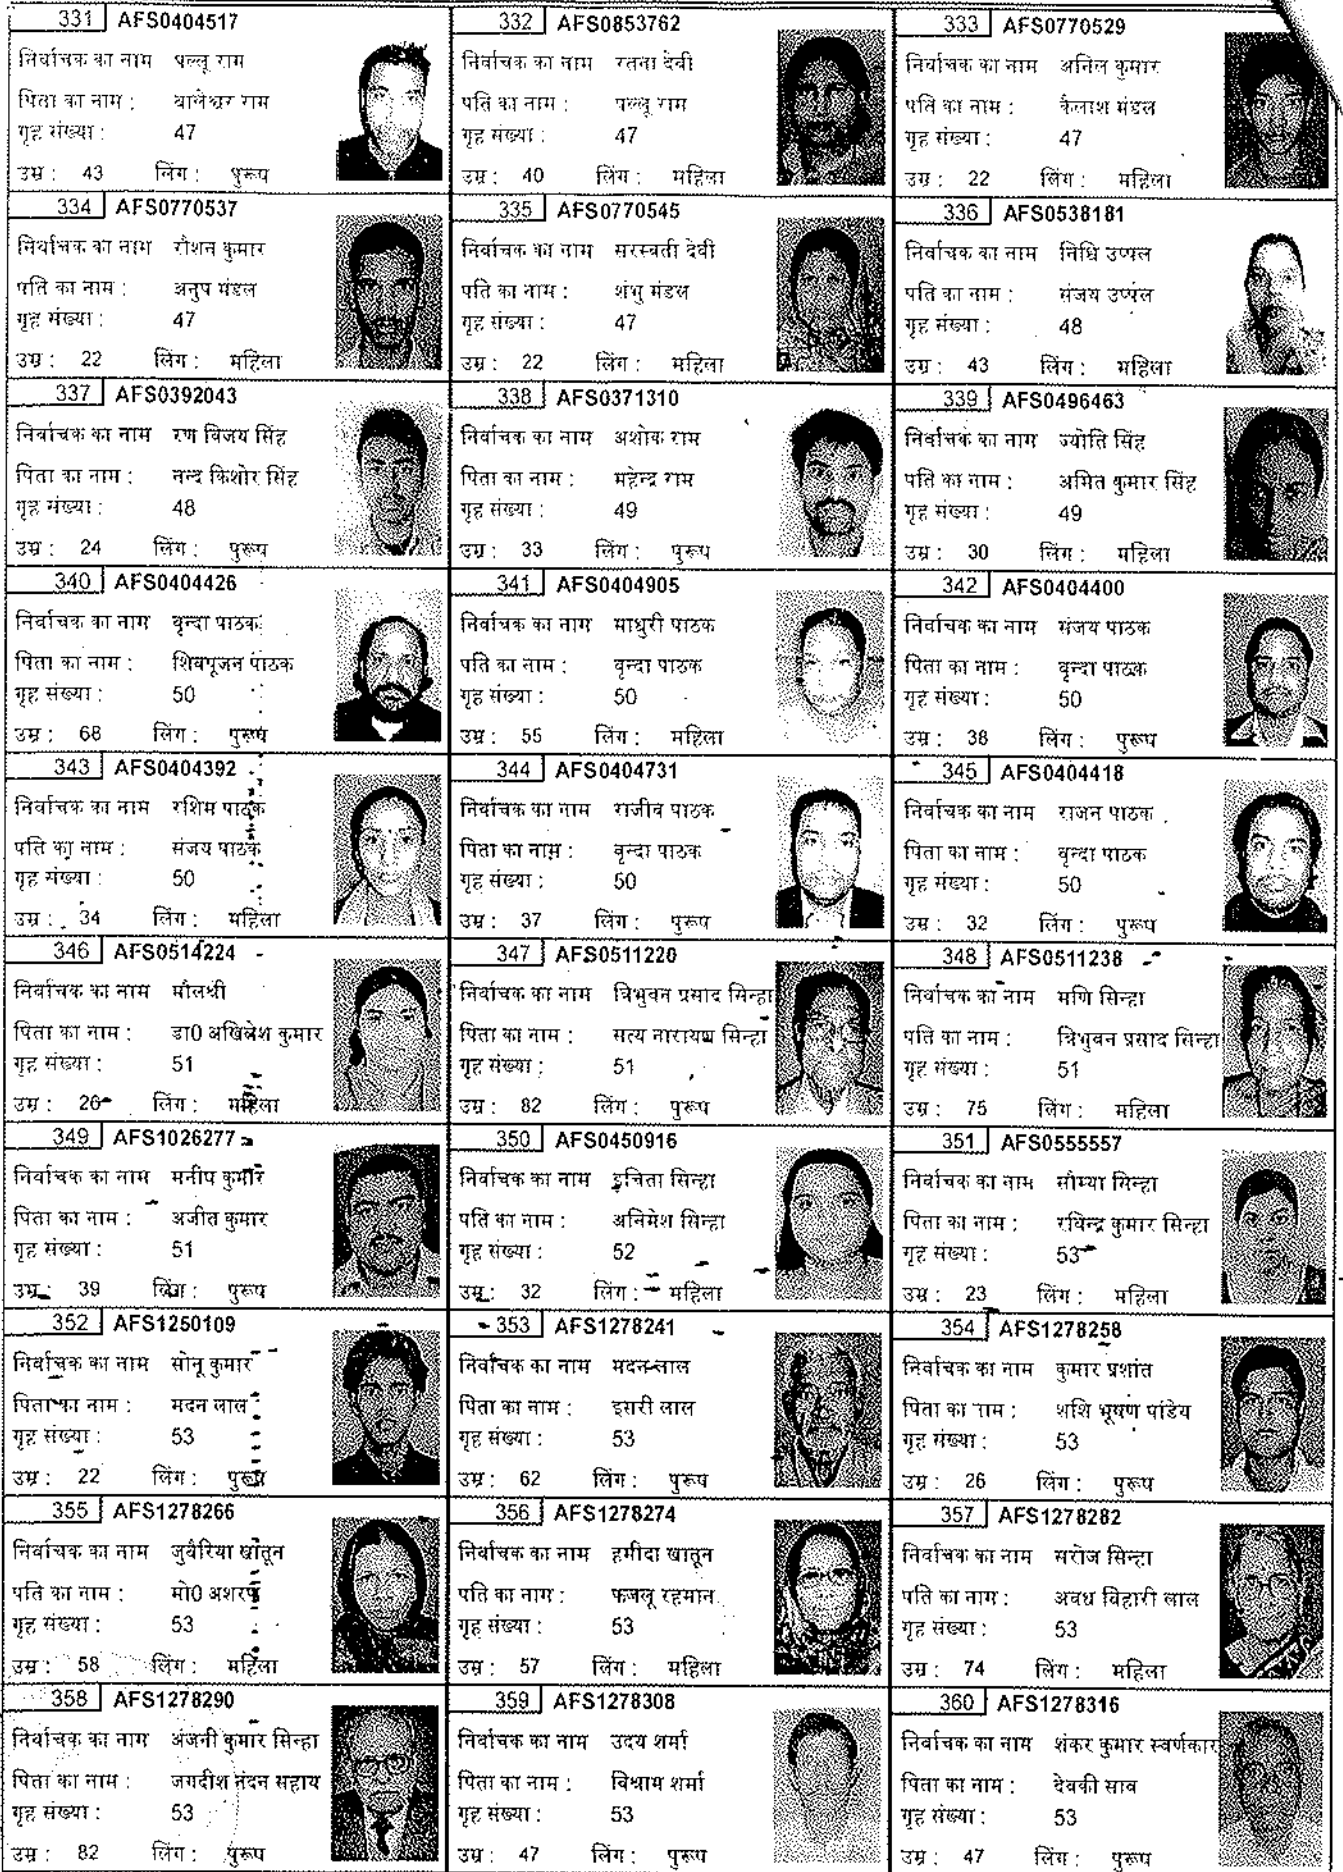 331 AFS0404517
निर्वाचक का नाम पल्लू राम
पिता का नाम : बालेश्वर राम
गृह संख्या : 47
उम्र : 43 लिंग : पुरूष
332 AFS0853762
निर्वाचक का नाम रतना देवी
पति का नाम : पल्लू राम
गृह संख्या : 47
उम्र : 40 लिंग : महिला
333 AFS0770529
निर्वाचक का नाम अनिल कुमार
पति का नाम : कैलाश मंडल
गृह संख्या : 47
उम्र : 22 लिंग : महिला
334 AFS0770537
निर्वाचक का नाम रौशन कुमार
पति का नाम : अनुप मंडल
गृह संख्या : 47
उम्र : 22 लिंग : महिला
335 AFS0770545
निर्वाचक का नाम सरस्वती देवी
पति का नाम : शंभु मंडल
गृह संख्या : 47
उम्र : 22 लिंग : महिला
336 AFS0538181
निर्वाचक का नाम निधि उप्पल
पति का नाम : संजय उप्पल
गृह संख्या : 48
उम्र : 43 लिंग : महिला
337 AFS0392043
निर्वाचक का नाम रण विजय सिंह
पिता का नाम : नन्द किशोर सिंह
गृह संख्या : 48
उम्र : 24 लिंग : पुरूष
338 AFS0371310
निर्वाचक का नाम अशोक राम
पिता का नाम : महेन्द्र राम
गृह संख्या : 49
उम्र : 33 लिंग : पुरूष
339 AFS0496463
निर्वाचक का नाम ज्योति सिंह
पति का नाम : अमित कुमार सिंह
गृह संख्या : 49
उम्र : 30 लिंग : महिला
340 AFS0404426
निर्वाचक का नाम वृन्दा पाठक
पिता का नाम : शिवपूजन पाठक
गृह संख्या : 50
उम्र : 68 लिंग : पुरूष
341 AFS0404905
निर्वाचक का नाम माधुरी पाठक
पति का नाम : वृन्दा पाठक
गृह संख्या : 50
उम्र : 55 लिंग : महिला
342 AFS0404400
निर्वाचक का नाम संजय पाठक
पिता का नाम : वृन्दा पाठक
गृह संख्या : 50
उम्र : 38 लिंग : पुरूष
343 AFS0404392
निर्वाचक का नाम रशिम पाठक
पति का नाम : संजय पाठक
गृह संख्या : 50
उम्र : 34 लिंग : महिला
344 AFS0404731
निर्वाचक का नाम राजीव पाठक
पिता का नाम : वृन्दा पाठक
गृह संख्या : 50
उम्र : 37 लिंग : पुरूष
345 AFS0404418
निर्वाचक का नाम राजन पाठक
पिता का नाम : वृन्दा पाठक
गृह संख्या : 50
उम्र : 32 लिंग : पुरूष
346 AFS0514224
निर्वाचक का नाम मौलश्री
पिता का नाम : डा0 अखिलेश कुमार
गृह संख्या : 51
उम्र : 26 लिंग : महिला
347 AFS0511220
निर्वाचक का नाम त्रिभुवन प्रसाद सिन्हा
पिता का नाम : सत्य नारायण सिन्हा
गृह संख्या : 51
उम्र : 82 लिंग : पुरूष
348 AFS0511238
निर्वाचक का नाम मणि सिन्हा
पति का नाम : त्रिभुवन प्रसाद सिन्हा
गृह संख्या : 51
उम्र : 75 लिंग : महिला
349 AFS1026277
निर्वाचक का नाम मनीष कुमार
पिता का नाम : अजीत कुमार
गृह संख्या : 51
उम्र 39 लिंग : पुरूष
350 AFS0450916
निर्वाचक का नाम इचिता सिन्हा
पति का नाम : अनिमेश सिन्हा
गृह संख्या : 52
उम्र : 32 लिंग : महिला
351 AFS0555557
निर्वाचक का नाम सौम्या सिन्हा
पिता का नाम : रविन्द्र कुमार सिन्हा
गृह संख्या : 53
उम्र : 23 लिंग : महिला
352 AFS1250109
निर्वाचक का नाम सोनू कुमार
पिता का नाम : मदन लाल
गृह संख्या : 53
उम्र : 22 लिंग : पुरूष
353 AFS1278241
निर्वाचक का नाम मदन लाल
पिता का नाम : इसरी लाल
गृह संख्या : 53
उम्र : 62 लिंग : पुरूष
354 AFS1278258
निर्वाचक का नाम कुमार प्रशांत
पिता का नाम : शशि भूषण पांडेय
गृह संख्या : 53
उम्र : 26 लिंग : पुरूष
355 AFS1278266
निर्वाचक का नाम जुबैरिया खातून
पति का नाम : मो0 अशरफ
गृह संख्या : 53
उम्र : 58 लिंग : महिला
356 AFS1278274
निर्वाचक का नाम हमीदा खातून
पति का नाम : फजलू रहमान
गृह संख्या : 53
उम्र : 57 लिंग : महिला
357 AFS1278282
निर्वाचक का नाम सरोज सिन्हा
पति का नाम : अवध विहारी लाल
गृह संख्या : 53
उम्र : 74 लिंग : महिला
358 AFS1278290
निर्वाचक का नाम अंजनी कुमार सिन्हा
पिता का नाम : जगदीश नंदन सहाय
गृह संख्या : 53
उम्र : 82 लिंग : पुरूष
359 AFS1278308
निर्वाचक का नाम उदय शर्मा
पिता का नाम : विश्राम शर्मा
गृह संख्या : 53
उम्र : 47 लिंग : पुरूष
360 AFS1278316
निर्वाचक का नाम शंकर कुमार स्वर्णकार
पिता का नाम : देवकी साव
गृह संख्या : 53
उम्र : 47 लिंग : पुरूष